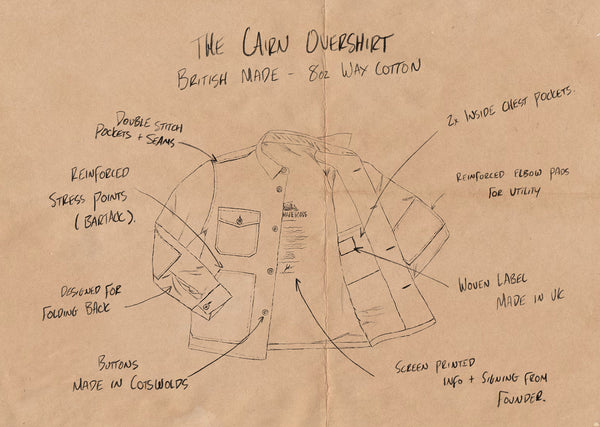 THE CAIRN OVERSHIRT
BRITISH MADE - 8oz WAX COTTON
DOUBLE STITCH
POCKETS + SEAMS
2x INSIDE CHEST POCKETS.
REINFORCED
STRESS POINTS
(BARTACK).
REINFORCED ELBOW PADS
FOR UTILITY
DESIGNED FOR
FOLDING BACK
WOVEN LABEL
MADE IN UK
BUTTONS
MADE IN COTSWOLDS
SCREEN PRINTED
INFO + SIGNING FROM
FOUNDER.